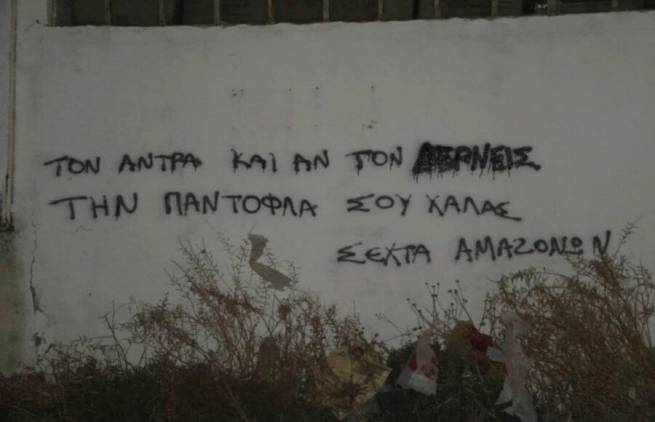 ΤΟΝ ΑΝΤΡΑ ΚΑΙ ΑΝ ΤΟΝ ΔΕΡΝΕΙΣ
ΤΗΝ ΠΑΝΤΟΦΛΑ ΣΟΥ ΧΑΛΑΣ
ΣΕΧΤΑ ΑΜΑΖΟΝΩΝ